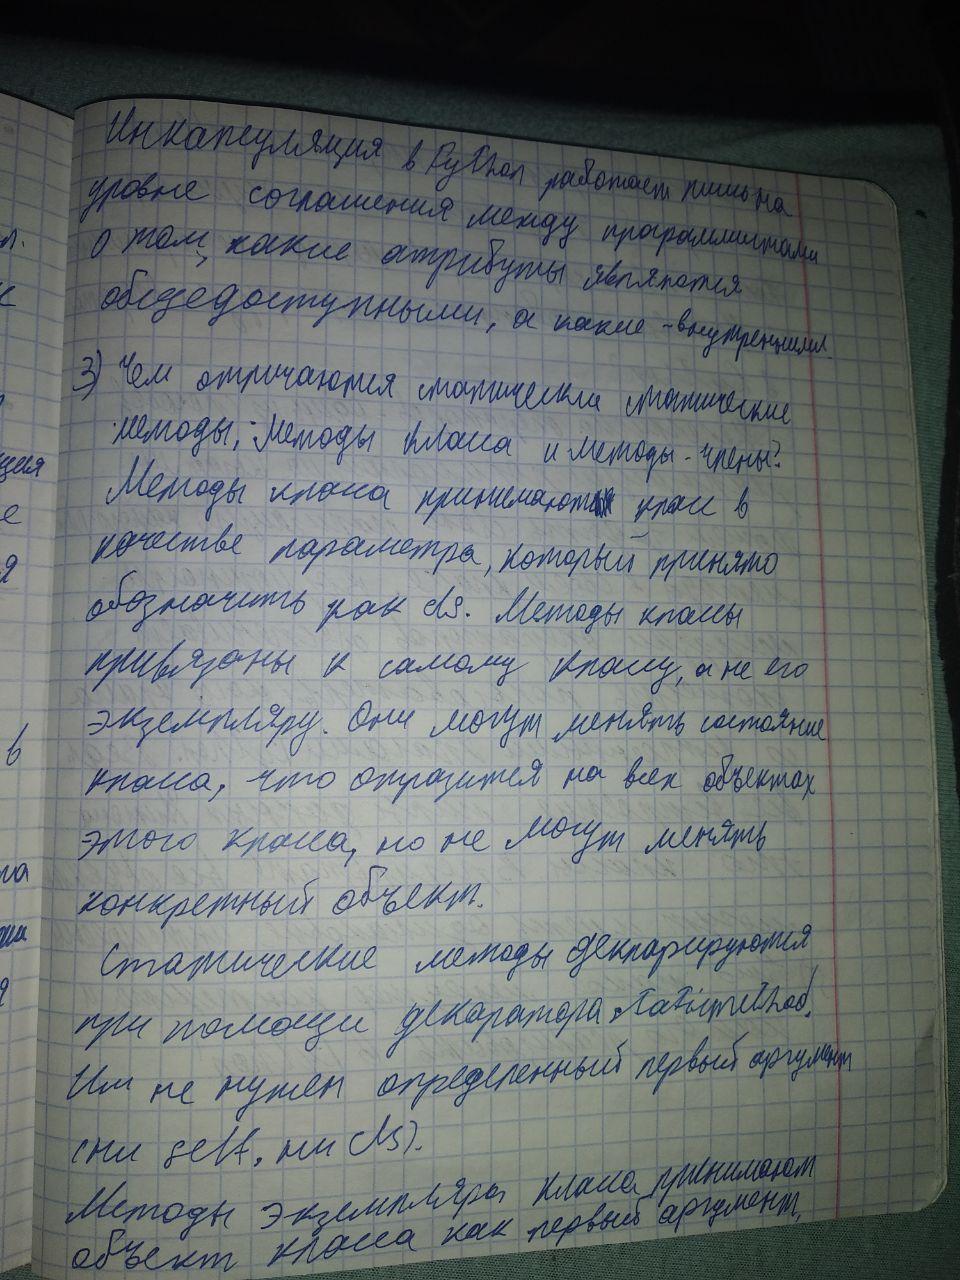 Инкапсуляция в Python работает лишь на
уровне соглашения между программистами
о том, какие атрибуты являются
общедоступными, а какие - внутренними.
3) Чем отличаются статически статические
методы, методы класса и методы-члены?
Методы класса принимают класс в
качестве параметра, который принято
обозначить как cls. Методы класса
привязаны к самому классу, а не его
экземпляру. Они могут менять состояние
класса, что отразится на всех объектах
этого класса, но не могут менять
конкретный объект.
Статические методы декларируются
при помощи декаратора staticmethod.
Им не нужен определенный первый аргумент
(ни self, ни cls).
Методы экземпляра класса принимают
объект класса как первый аргумент,